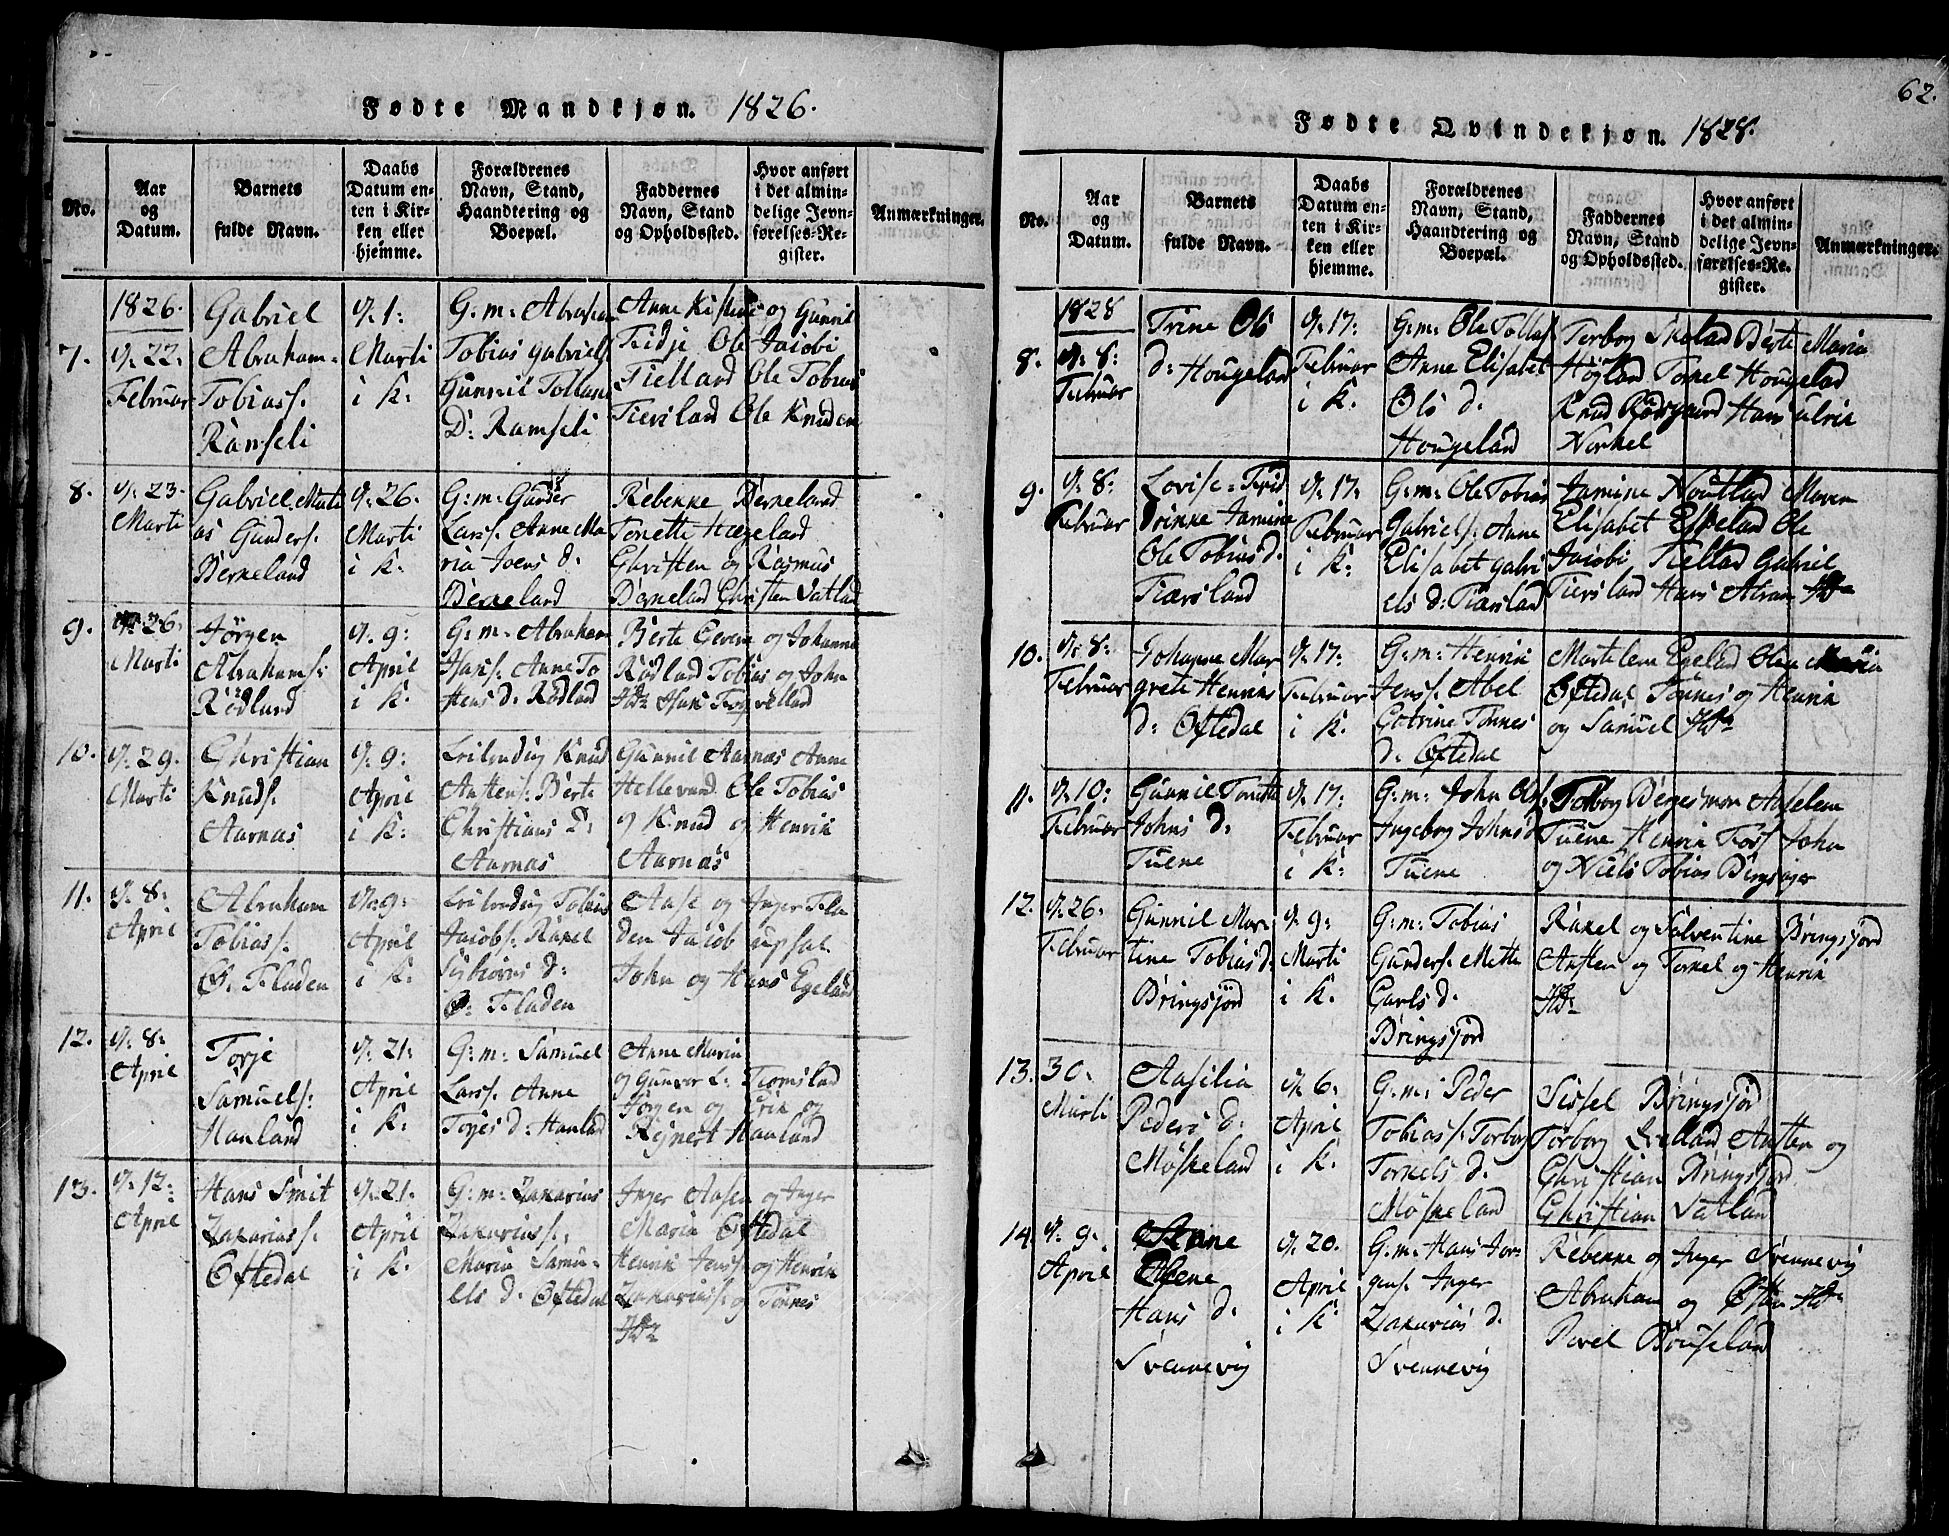 Fødte Mandkjøn. 1826.
No.
Aar
og
Datum.
Barnets
fulde Navn.
Daabs
Datum en-
ten i Kir-
ken eller
hjemme.
Forældrenes
Navn, Stand,
Haandtering og
Boepæl.
Faddernes
Navn, Stand
og Opholdssted.
Hvor anført
i det almin-
delige Jevn-
førelses-Re-
gister.
Anmærkninger.
1826.
7.
d. 22.
Februar
Gabriel
Abraham-
Tobiass.
Ramseli
d. 1:
Marti
i K.
G: m: Abraham
Tobias Gabriels
Gunnil Tollans
D: Ramseli
Anne Kistine og Gunnil
Fidje Ole Jacobi
Fielland Ole Tobias
Tiersland Ole Knuden
8.
d. 23.
Marti
Gabriel Mati
as Gunders.
Berneland
d. 26.
Marti
i K.
G: m: Gunder
Larss. Anne Ma
ria Joens d:
Berneland
Rebenne Berneland
Tonette Hægeland
Christen og Rasmus
Berneland Christen Satland
9.
d. 26.
Marti
Jörgen
Abrahams.
Rödland
d. 9:
April
i K.
G: m: Abraham
Hans. Anne To
stens d: Rödland
Berte Evene og Johanne
Rödland Tobias og John
10.
d. 29.
Marti
Christian
Knuds.
Aarnas
d. 9:
April
i K:
Leilending Knud
Austens: Berte
Christians D:
Aarnas
Gunnil Aarnas Anne
Hellevand Ole Tobias
og Knud og Henrik
Aarnas
11.
d. 8:
April
Abraham
Tobiass.
Ø: Fladen
d. 9:
April
i K:
Leilending Tobias
Jacobs: Rakel
Sisbiörns d:
Ø: Fladen
Aase og Inger Fla
den Jacob upsal
John og Hans Egeland
12.
d. 8:
April
Torje
Samuels:
Hauland
d. 21:
April
i K:
G: m: Samuel
Larss. Anne
Torjes d: Hauland
Anne Maria
og Gunvor L: Tiomsland
Jörgen og Erik og
Rejnert Hauland
13.
d. 12:
April
Hans Smit
Zakariass.
Oftedal
d. 21.
April
i K:
G: m: Zakarias
Zakariass.
Maria Samu-
els d: Oftedal
Inger Aasen og Inger
Maria Oftedal
Henrik Jenss. og Henrik
Zakariass. og Tönnes
62.
Fødte Qvindekjøn. 1828.
No.
Aar
og
Datum.
Barnets
fulde Navn.
Daabs
Datum en-
ten i Kir-
ken eller
hjemme.
Forældrenes
Navn, Stand,
Haandtering og
Boepæl.
Faddernes
Navn, Stand
og Opholdssted.
Hvor anført
i det almin-
delige Jevn-
førelses-Re-
gister.
Anmærkninger.
1828
8.
d. 8:
Februar
Trine Ols
d: Hougeland
d. 17:
Februar
i K.
G: m: Ole Tollafs
Anne Elisabet
Ols d.
Hougeland
Torborg Skeland Berte Maria
Högland Torkel Hougeland
Knud Rödsgaard Hans ulrik
Norkel
9.
d. 8:
Februar
Lovise Frid
drikke Jamine
Ole Tobias d.
Tiersland
d. 17:
Februar
i K:
G: m: Ole Tobias
Gabriels: Anne
Elisabet Gabri
els d: Tiersland
Jamine Noutland Maren
Elisabet Eskeland Ole
Jacobi Fielland Gabriel
Tiersland Hans
10.
d. 8:
Februar
Johanne Mar
grete Henriks
d: Oftedal
d. 17:
Februar
i K.
G: m: Henrik
Jenss. Abel
Gotrine Tönnes
d. Oftedal
Martilene Egeland Olene Maria
Oftedal Tönnes og Henrik
og Samuel
11.
d. 10:
Februar
Gunnil Tonette
Johns d:
Tuene
d. 17:
Februar
i K:
G: m: John Ols:
Ingeborg Johns d
Tuene
Torborg Bergesmon Aaselene
Tuene Henrik Foss John
og Niels Tobias Bergsager
12.
d. 26.
Februar
Gunnil Mar-
tine Tobias d.
Bringsjord
d. 9:
Marti
i K.
G: m: Tobias
Gunders. Mette
Carls d.
Bringsjord
Rakel og Salventine Bringsjord
Austen og Torkel og Henrik
13.
30.
Marti
Aasilia
Peders d:
Møskeland
d. 6:
April
i K.
G: m: Peder
Tobiass: Torborg
Torkels d.
Møskeland
Sissel Bringsjord
Torborg Qvelland Austen og
Christian Bringsjord
Christian Satland
14.
d. 9.
April
Hans d:
Svennevig
d. 20.
April
i K
G: m: Hans Jör-
gens. Inger
Zakarias d.
Svennevig
Rebenne og Inger Svennevig
Abraham og
Pavel Bruseland